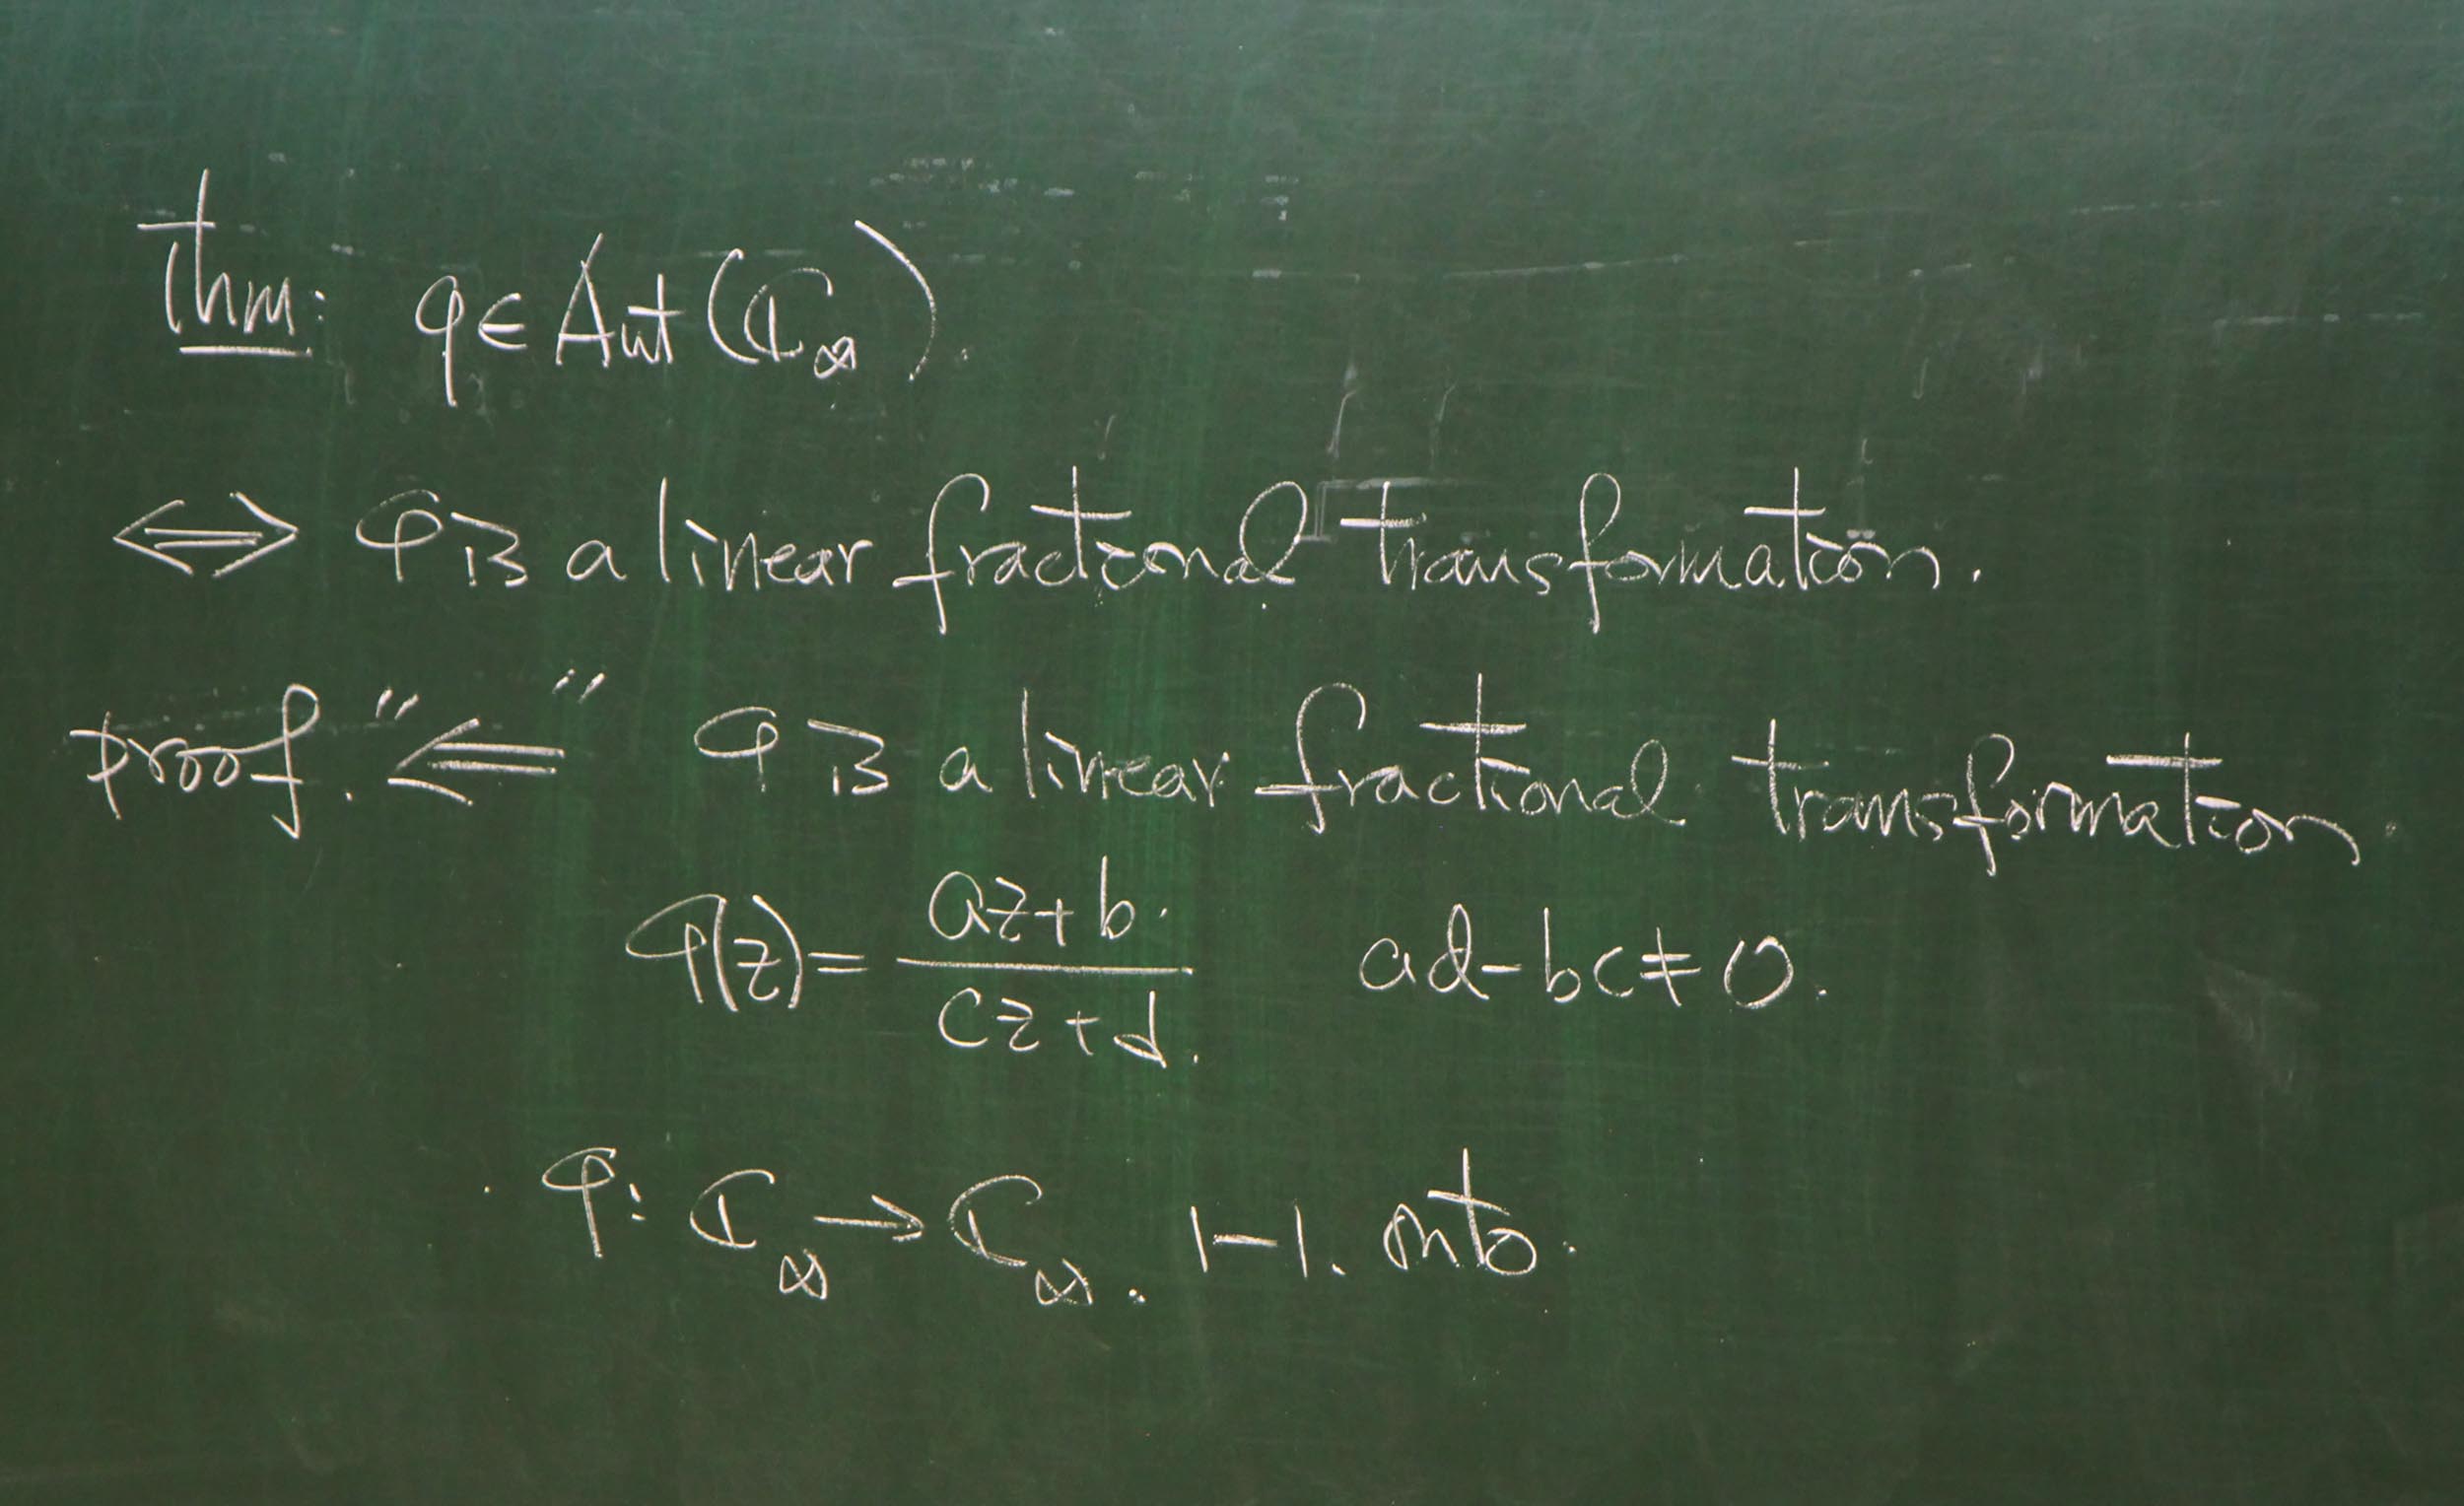 Thm: φ∈Aut(ℂ∞).
⇔ φ is a linear fractional transformation.
proof. "⇐" φ is a linear fractional transformation.
φ(z)= (az+b)/(cz+d). ad-bc≠0.
φ: ℂ∞→ℂ∞. 1-1. onto.